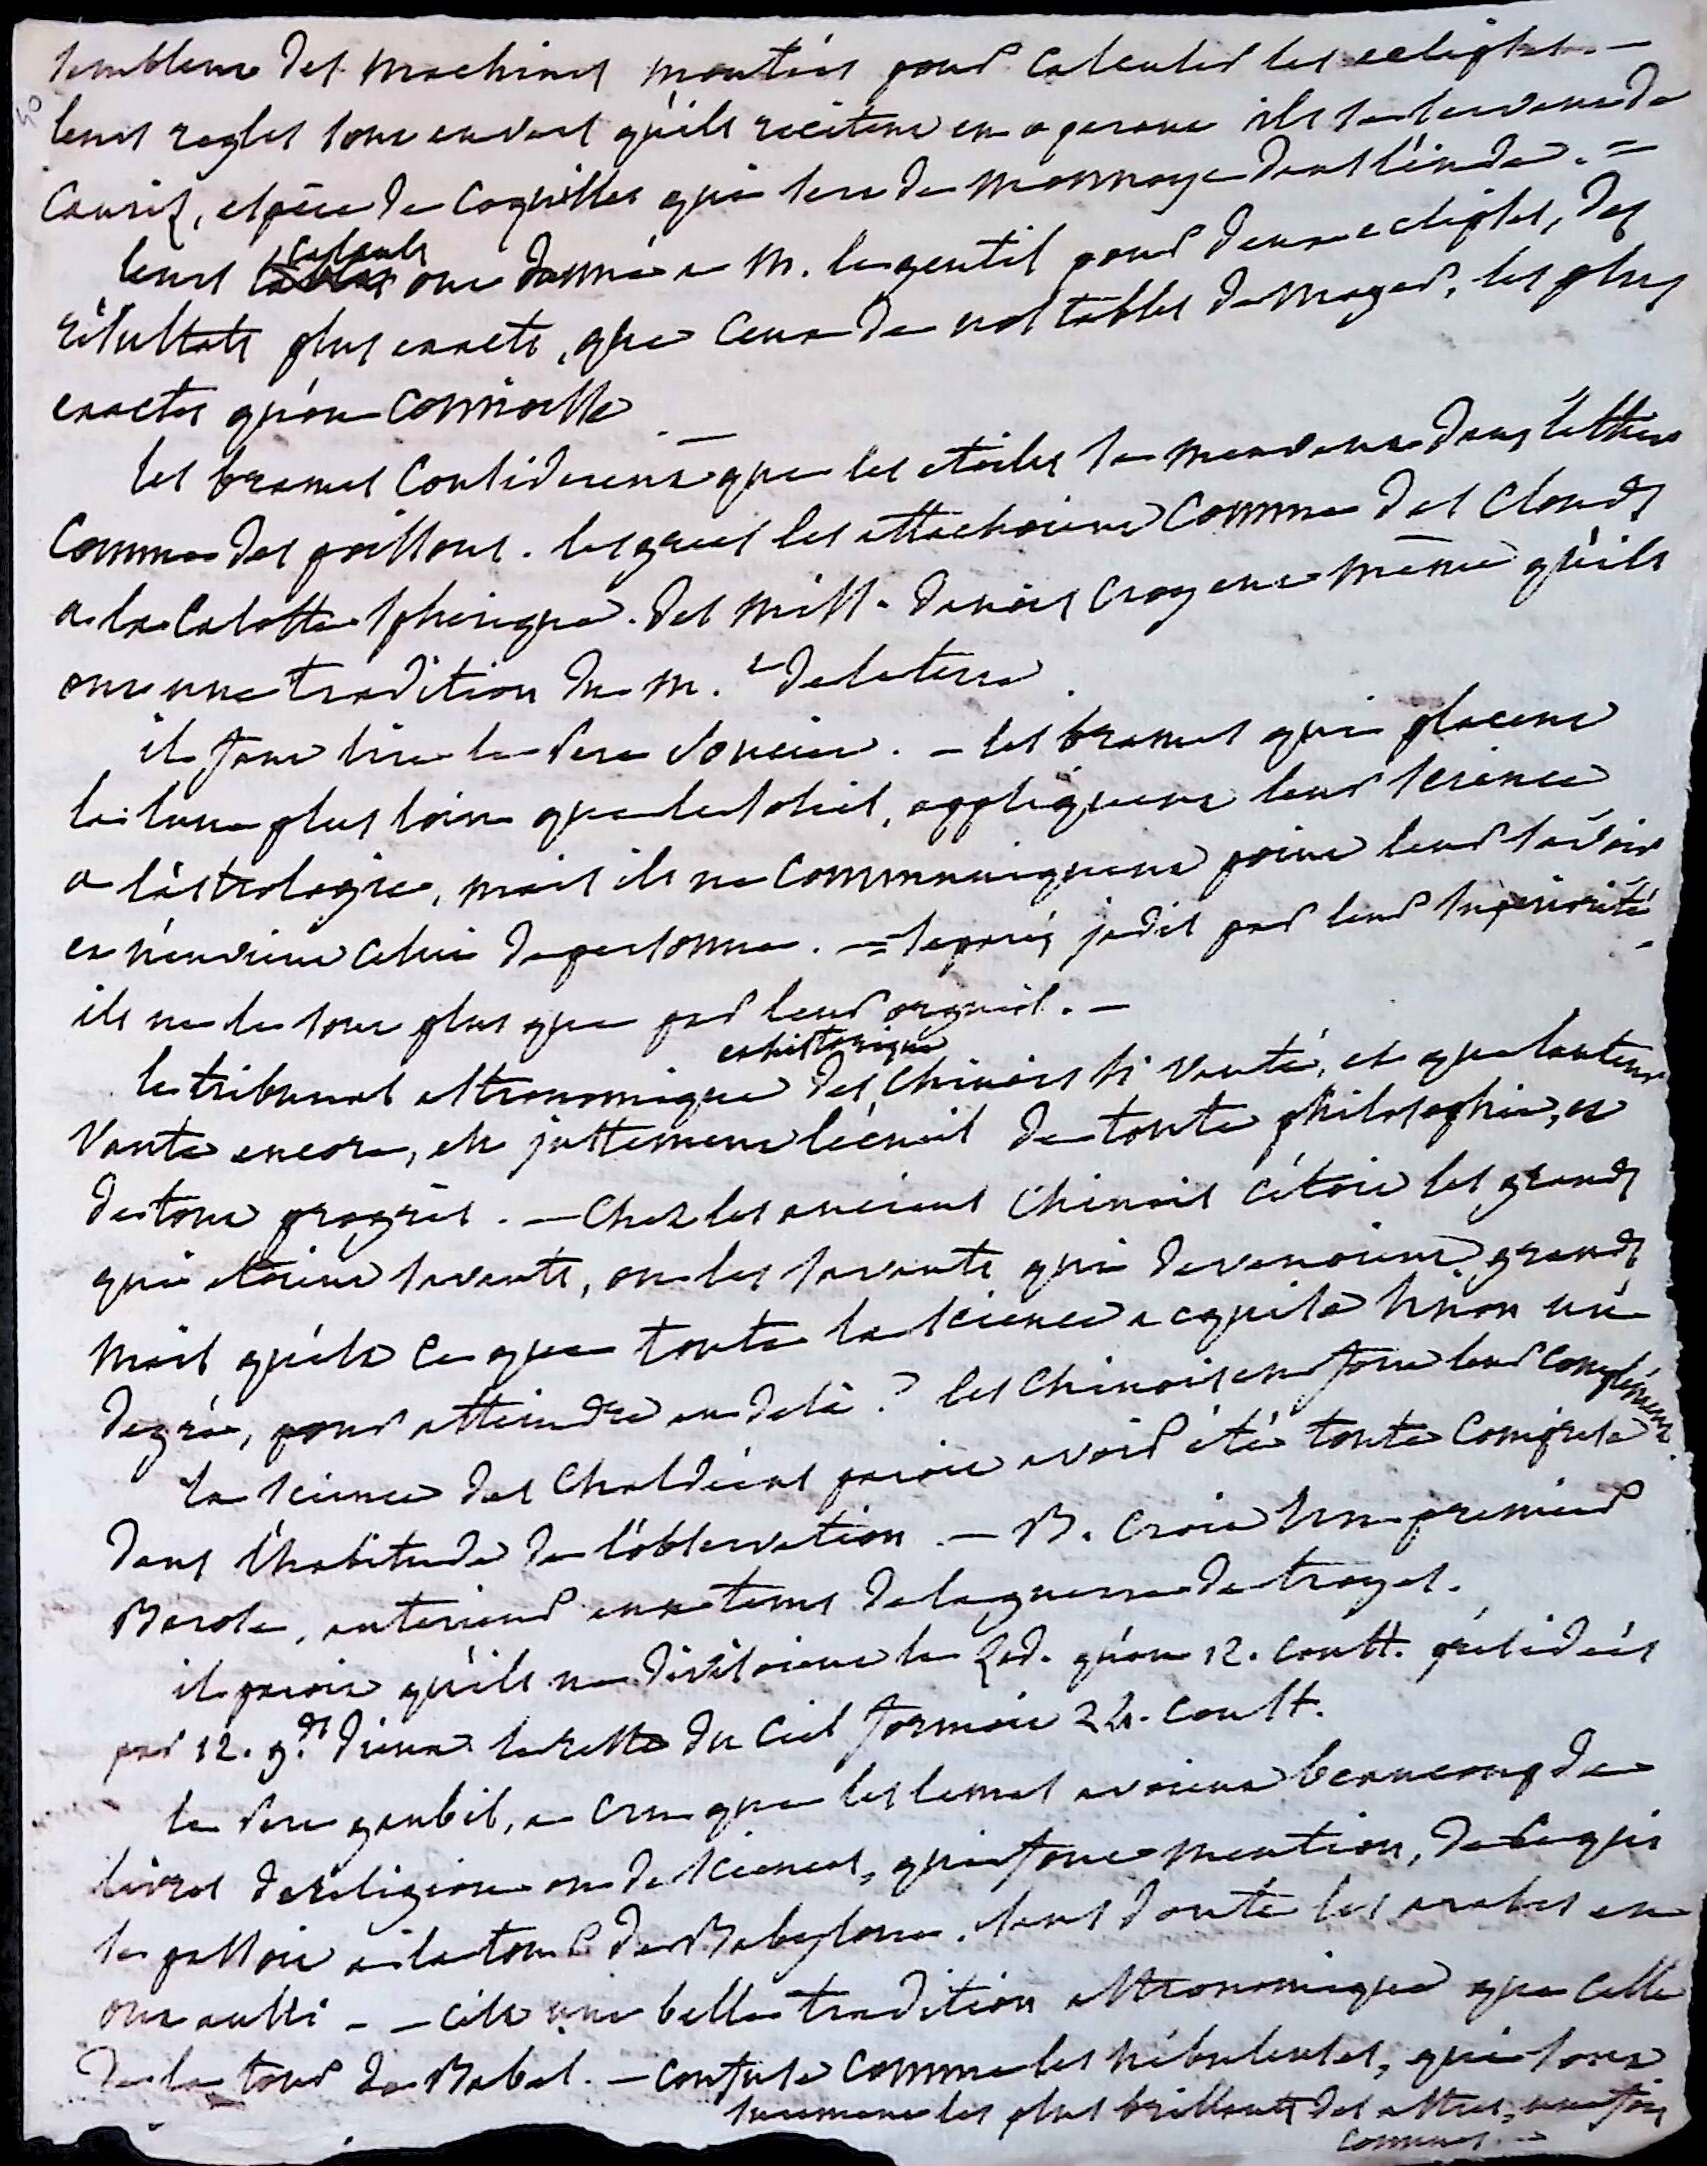 semblent des machines montées pour calculer les eclipses. —
leurs regles sont en vers qu'ils recitent en operant ils se servent de
Cauris, espece de Coquilles qui sert de monnoye dans l'inde. =
leurs calculs ont donné a M. le gentil pour deux eclipses, des
résultats plus exacts, que ceux de nos tables de mayer, les plus
exactes qu'on connoisse —
les brames considerent que les etoiles se meuvent dans l'ether
comme des poissons. les grecs les attachoient comme des clouds
a la calotte spherique. des miss. danois croyent même qu'ils
ont une tradition du m.t de la terre.
il faut lire le Pere Souciet. — les brames qui placent
la lune plus loin que le soleil, appliquent leur science
a l'astrologie, mais ils ne communiquent point leur savoir
et n'envient celui de personne. = separés jadis par leur superiorité
ils ne le sont plus que par leur orgueil. —
et historique
le tribunal astronomique des chinois si vanté, et que l'auteur
vante encore, est justement l'écueil de toute philosophie, et
de tout progrès. — Chez les anciens Chinois c'étoit les grands
qui etoient savants, ou les savants qui devenoient grands
mais qu'est ce que toute la science acquise sinon un
degré, pour atteindre au delà ? les chinois en font leur complément.
la science des Chaldéens paroit avoir été toute comprise
dans l'habitude de l'observation. — B. croit un premier
Berose, anterieur aux tems de la guerre de troyes.
il paroit qu'ils ne divisoient le Zod. qu'en 12. const. présidées
par 12. g.ds dieux. le reste du Ciel formoit 24. const.
le Pere gaubil, a cru que les lamas avoient beaucoup de
livres de religion ou de sciences, qui font mention, de ce qui
se passoit a la tour de Babylone. sans doute les arabes en
ont aussi — — c'est une belle tradition astronomique que celle
de la tour de Babel. — confuse comme les nébuleuses, qui sont
surement les plus brillants des astres, une fois
connus. —